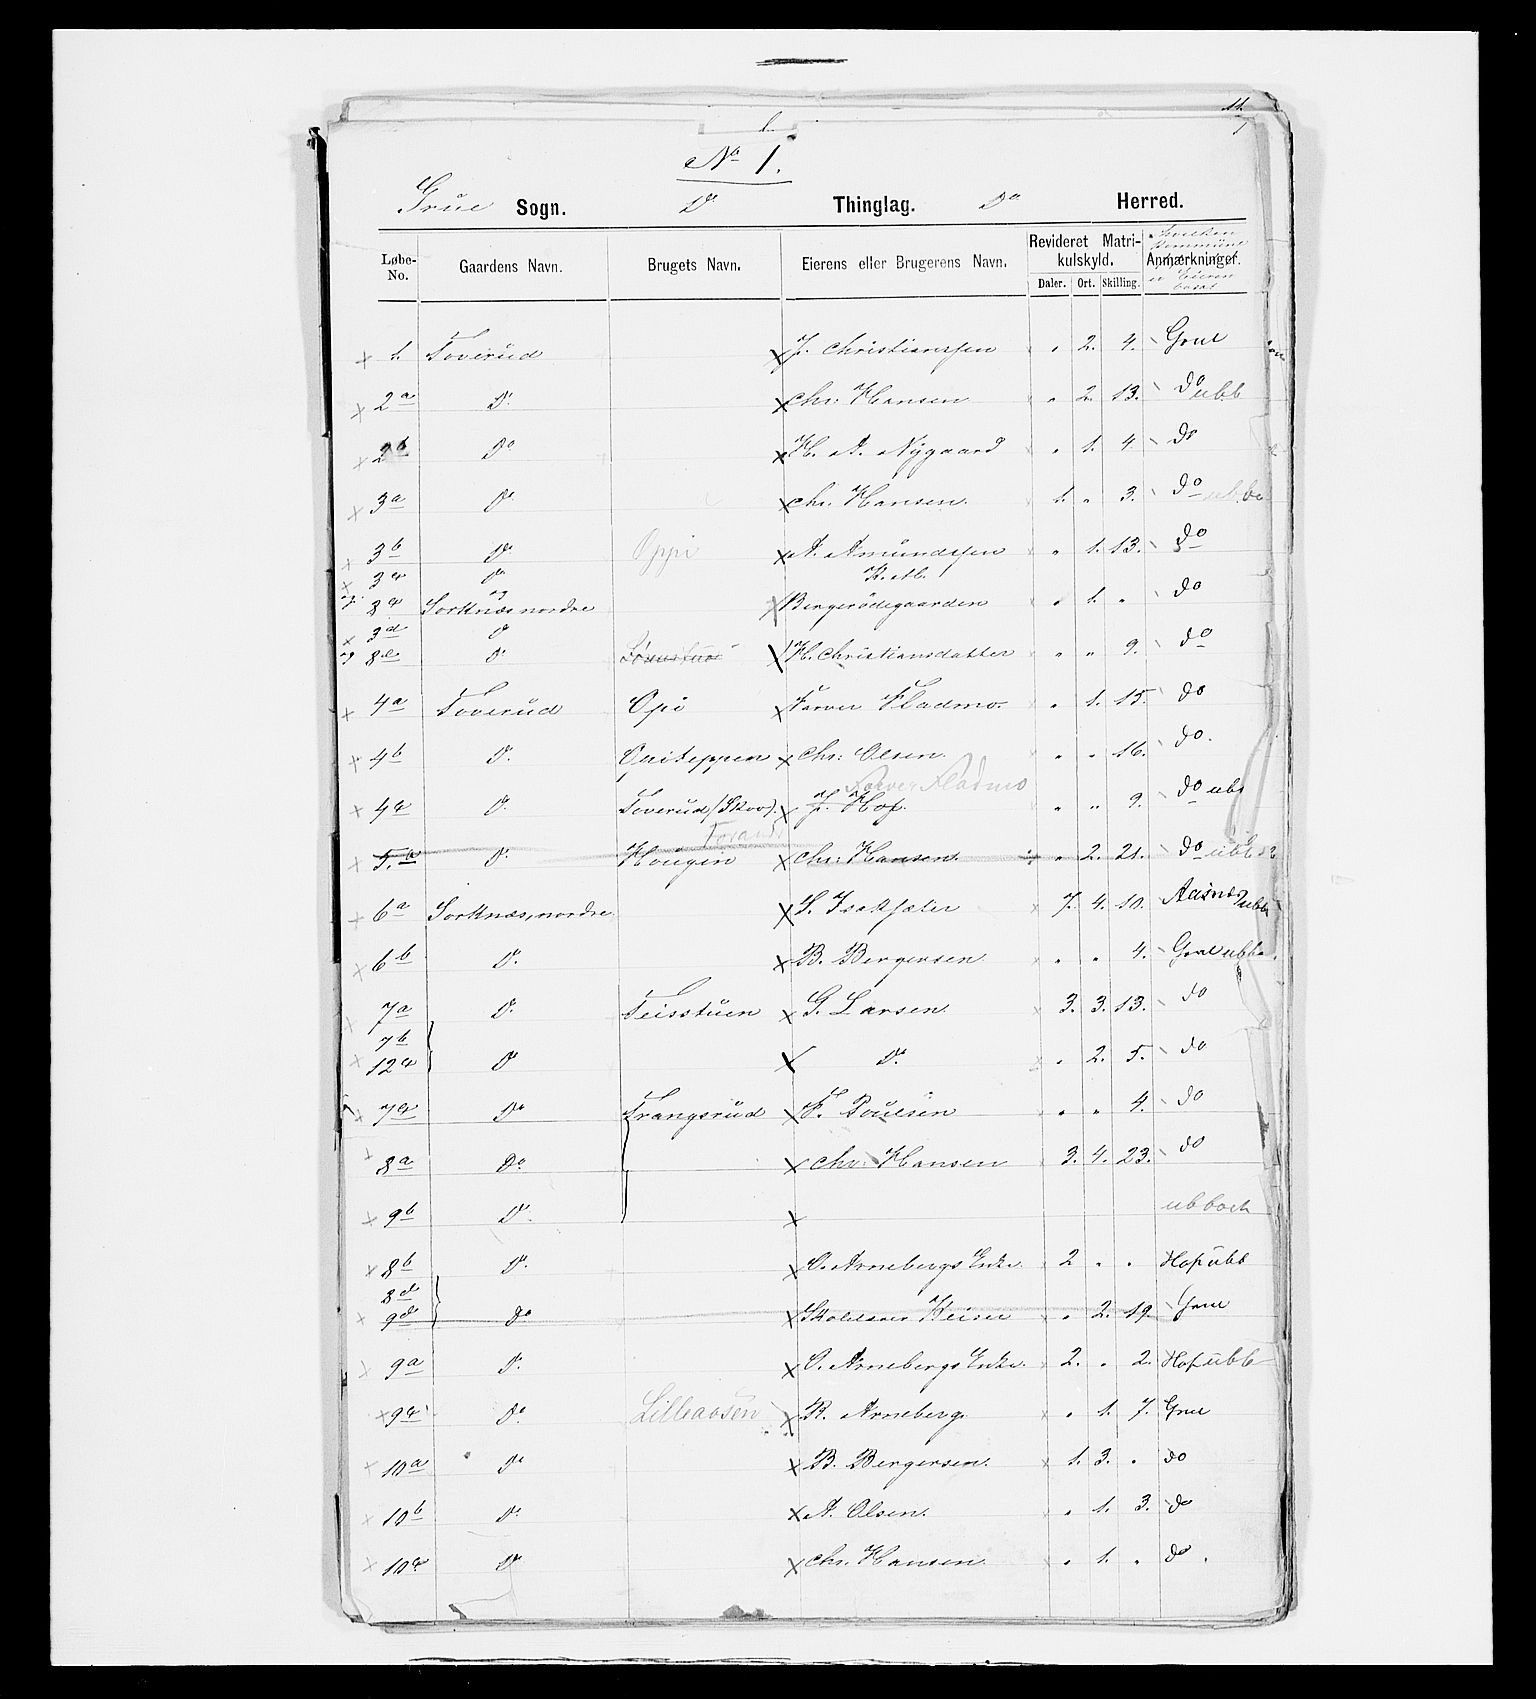 11
1
No 1.
Grue Sogn. Do Thinglag. Do Herred.
Løbe-No. Gaardens Navn. Brugets Navn. Eierens eller Brugerens Navn. Revideret Matrikulskyld. Daler. Ort. Skilling. Anmærkninger. hvilken Kommune er Eieren bosat
× 1. Toverud × J. Christianssen " 2. 4. Grue
× 2a Do × Chr. Hansen " 2. 13. do ubb
× 2b Do × H. A. Nygaard " 1. 4 do
× 3a Do × Chr. Hansen. 1. " 3. do
× 3b Do Oppi × A. Amundssen " 1. 13. do
× 3c Do
og 8c og Sorknæs nordre × Bergerødegaarden " 1. " do
× 3d Do
og 8e Do × H. Christiansdatter " " 9. do
× 4a Toverud Opi × Farver Fladmo. " 1. 15. do
× 4b Do Opiteppen × Chr. Olsen. " " 16. do.
Farver Fladmo
× 4c Do Toverud (Skov). × J. Hof. " " 9. do ubb
× 5.a Do Hougen × Chr. Hansen. " 2. 21. do ubb
× 6a Sorknæs, nordre × S. Isaksæter 7. 4. 10. Aasnæs ubb
× 6b Do × B. Bergersen. " " 4. Grue ubb
7a Do Teisstuen × G. Larsen. 3. 3. 13. do
7b
× 12c Do × Do " 2. 5. do
× 7c Do Trangsrud × F. Poulsen " " 4. do
8a Do × Chr. Hansen 3. 4. 23. do
× 9b Do × ubboet
× 8b Do × O. Arnebergs Enke. 2 " " Hof ubb
8d
× 9d Do × Skolelærer " 2. 19. Grue
× 9a Do × O. Arnebergs Enke. 2. " 2. Hof ubb
× 9c Do Lilleaasen × R. Arneberg. " 1. 7. Grue
× 10a Do × B. Bergersen. 1. 3. " do
× 10b Do × A. Olsen. " 1. 3. do
× 10c Do × Chr. Hansen. " 1. " do.